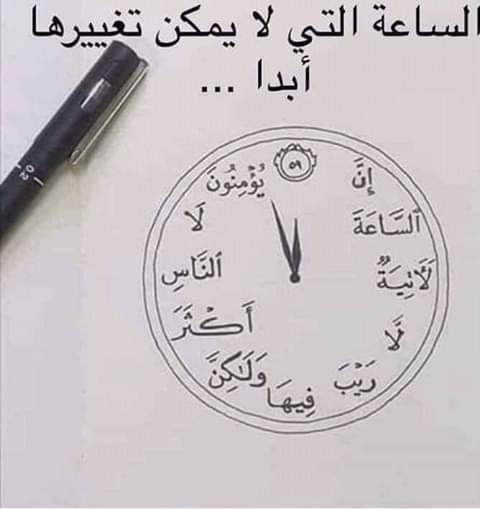 الساعة التي لا يمكن تغييرها
أبدا ...
إِنَّ
ٱلسَّاعَةَ
لَأَتِيَةٌ
لَّا
رَيْبَ
فِيهَا
وَلَٰكِنَّ
أَكْثَرَ
ٱلنَّاسِ
لَا
يُؤْمِنُونَ
٥٩
0.2